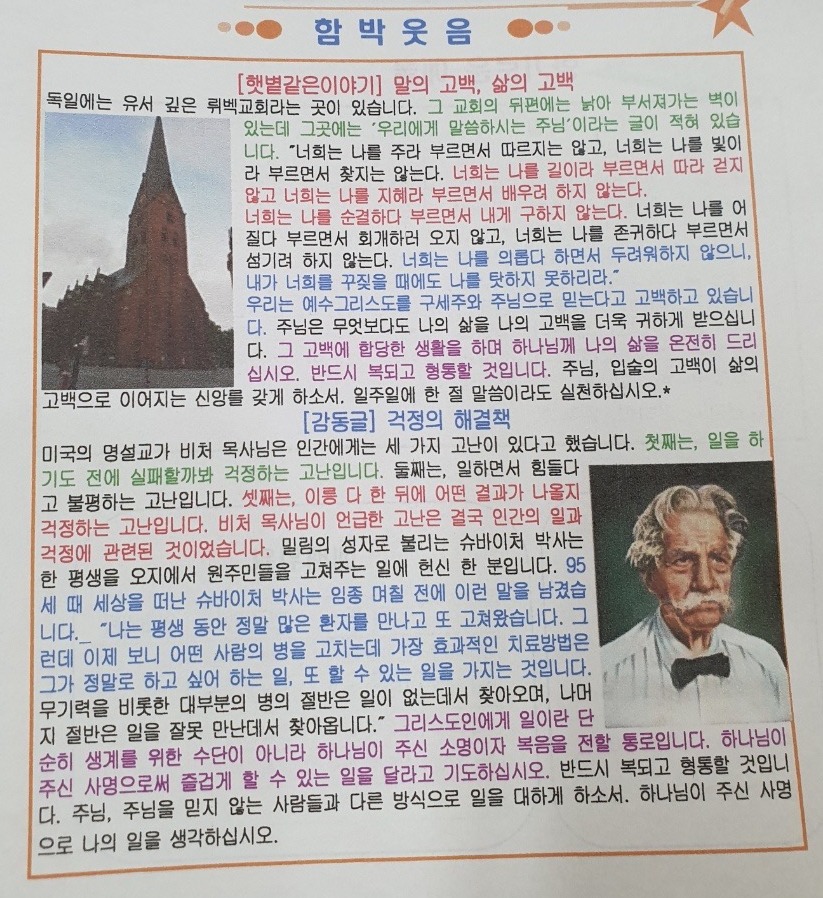 함박웃음
[햇볕같은이야기] 말의 고백, 삶의 고백
독일에는 유서 깊은 뤼벡교회라는 곳이 있습니다. 그 교회의 뒤편에는 낡아 부서져가는 벽이
있는데 그곳에는 '우리에게 말씀하시는 주님'이라는 글이 적혀 있습
니다. "너희는 나를 주라 부르면서 따르지는 않고, 너희는 나를 빛이
라 부르면서 찾지는 않는다. 너희는 나를 길이라 부르면서 따라 걷지
않고 너희는 나를 지혜라 부르면서 배우려 하지 않는다.
너희는 나를 순결하다 부르면서 내게 구하지 않는다. 너희는 나를 어
질다 부르면서 회개하러 오지 않고, 너희는 나를 존귀하다 부르면서
섬기려 하지 않는다. 너희는 나를 의롭다 하면서 두려워하지 않으니,
내가 너희를 꾸짖을 때에도 나를 탓하지 못하리라."
우리는 예수그리스도를 구세주와 주님으로 믿는다고 고백하고 있습니
다. 주님은 무엇보다도 나의 삶을 나의 고백을 더욱 귀하게 받으십니
다. 그 고백에 합당한 생활을 하며 하나님께 나의 삶을 온전히 드리
십시오. 반드시 복되고 형통할 것입니다. 주님, 입술의 고백이 삶의
고백으로 이어지는 신앙를 갖게 하소서. 일주일에 한 절 말씀이라도 실천하십시오.*
[감동글] 걱정의 해결책
미국의 명설교가 비처 목사님은 인간에게는 세 가지 고난이 있다고 했습니다. 첫째는, 일을 하
기도 전에 실패할까봐 걱정하는 고난입니다. 둘째는, 일하면서 힘들다
고 불평하는 고난입니다. 셋째는, 이룽 다 한 뒤에 어떤 결과가 나올지
걱정하는 고난입니다. 비처 목사님이 언급한 고난은 결국 인간의 일과
걱정에 관련된 것이었습니다. 밀림의 성자로 불리는 슈바이처 박사는
한 평생을 오지에서 원주민들을 고쳐주는 일에 헌신 한 분입니다. 95
세 때 세상을 떠난 슈바이처 박사는 임종 며칠 전에 이런 말을 남겼습
니다._ "나는 평생 동안 정말 많은 환자를 만나고 또 고쳐왔습니다. 그
런데 이제 보니 어떤 사람의 병을 고치는데 가장 효과적인 치료방법은
그가 정말로 하고 싶어 하는 일, 또 할 수 있는 일을 가지는 것입니다.
무기력을 비롯한 대부분의 병의 절반은 일이 없는데서 찾아오며, 나머
지 절반은 일을 잘못 만난데서 찾아옵니다." 그리스도인에게 일이란 단
순히 생계를 위한 수단이 아니라 하나님이 주신 소명이자 복음을 전할 통로입니다. 하나님이
주신 사명으로써 즐겁게 할 수 있는 일을 달라고 기도하십시오. 반드시 복되고 형통할 것입니
다. 주님, 주님을 믿지 않는 사람들과 다른 방식으로 일을 대하게 하소서. 하나님이 주신 사명
으로 나의 일을 생각하십시오.